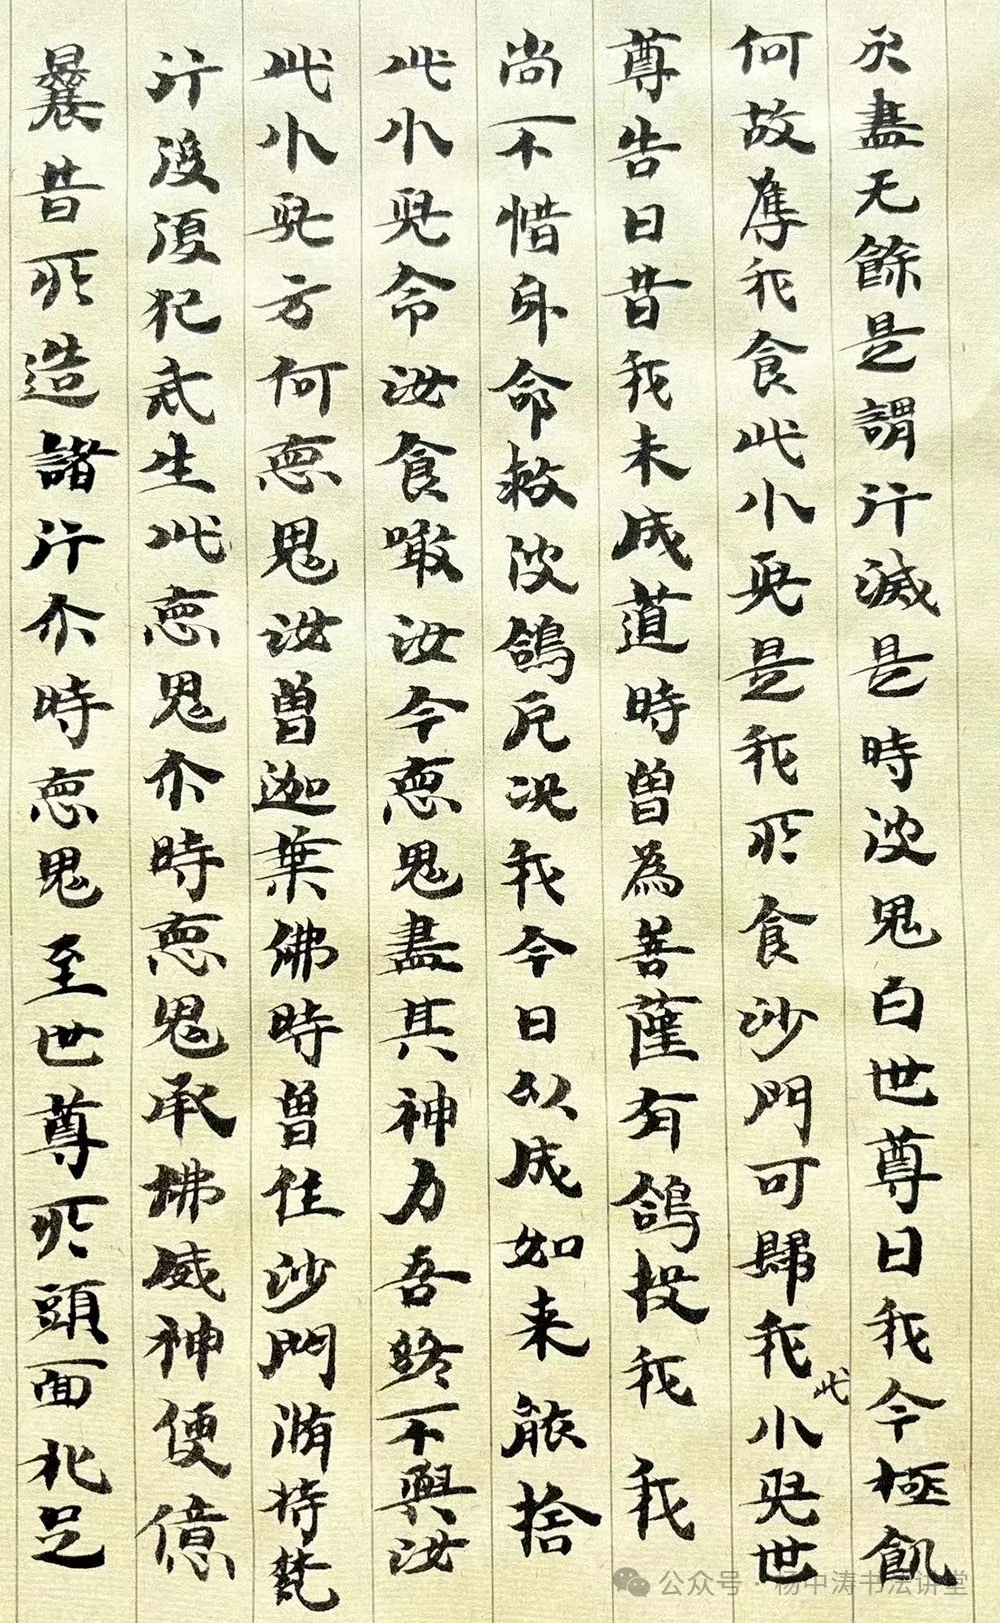 永盡无餘是謂行滅是時彼鬼白世尊曰我今極飢
何故奪我食此小兒是我所食沙門可歸我此小兒世
尊告曰昔我未成道時曾為菩薩有鴿投我我
尚不惜身命救彼鴿厄况我今日以成如来能捨
此小兒令汝食噉汝今惡鬼盡其神力吾終不與汝
此小兒云何惡鬼汝曾迦葉佛時曾作沙門脩持梵
行後復犯戒生此惡鬼尒時惡鬼承佛威神便憶
曩昔所造諸行尒時惡鬼至世尊所頭面礼足
公众号·杨中涛书法讲堂